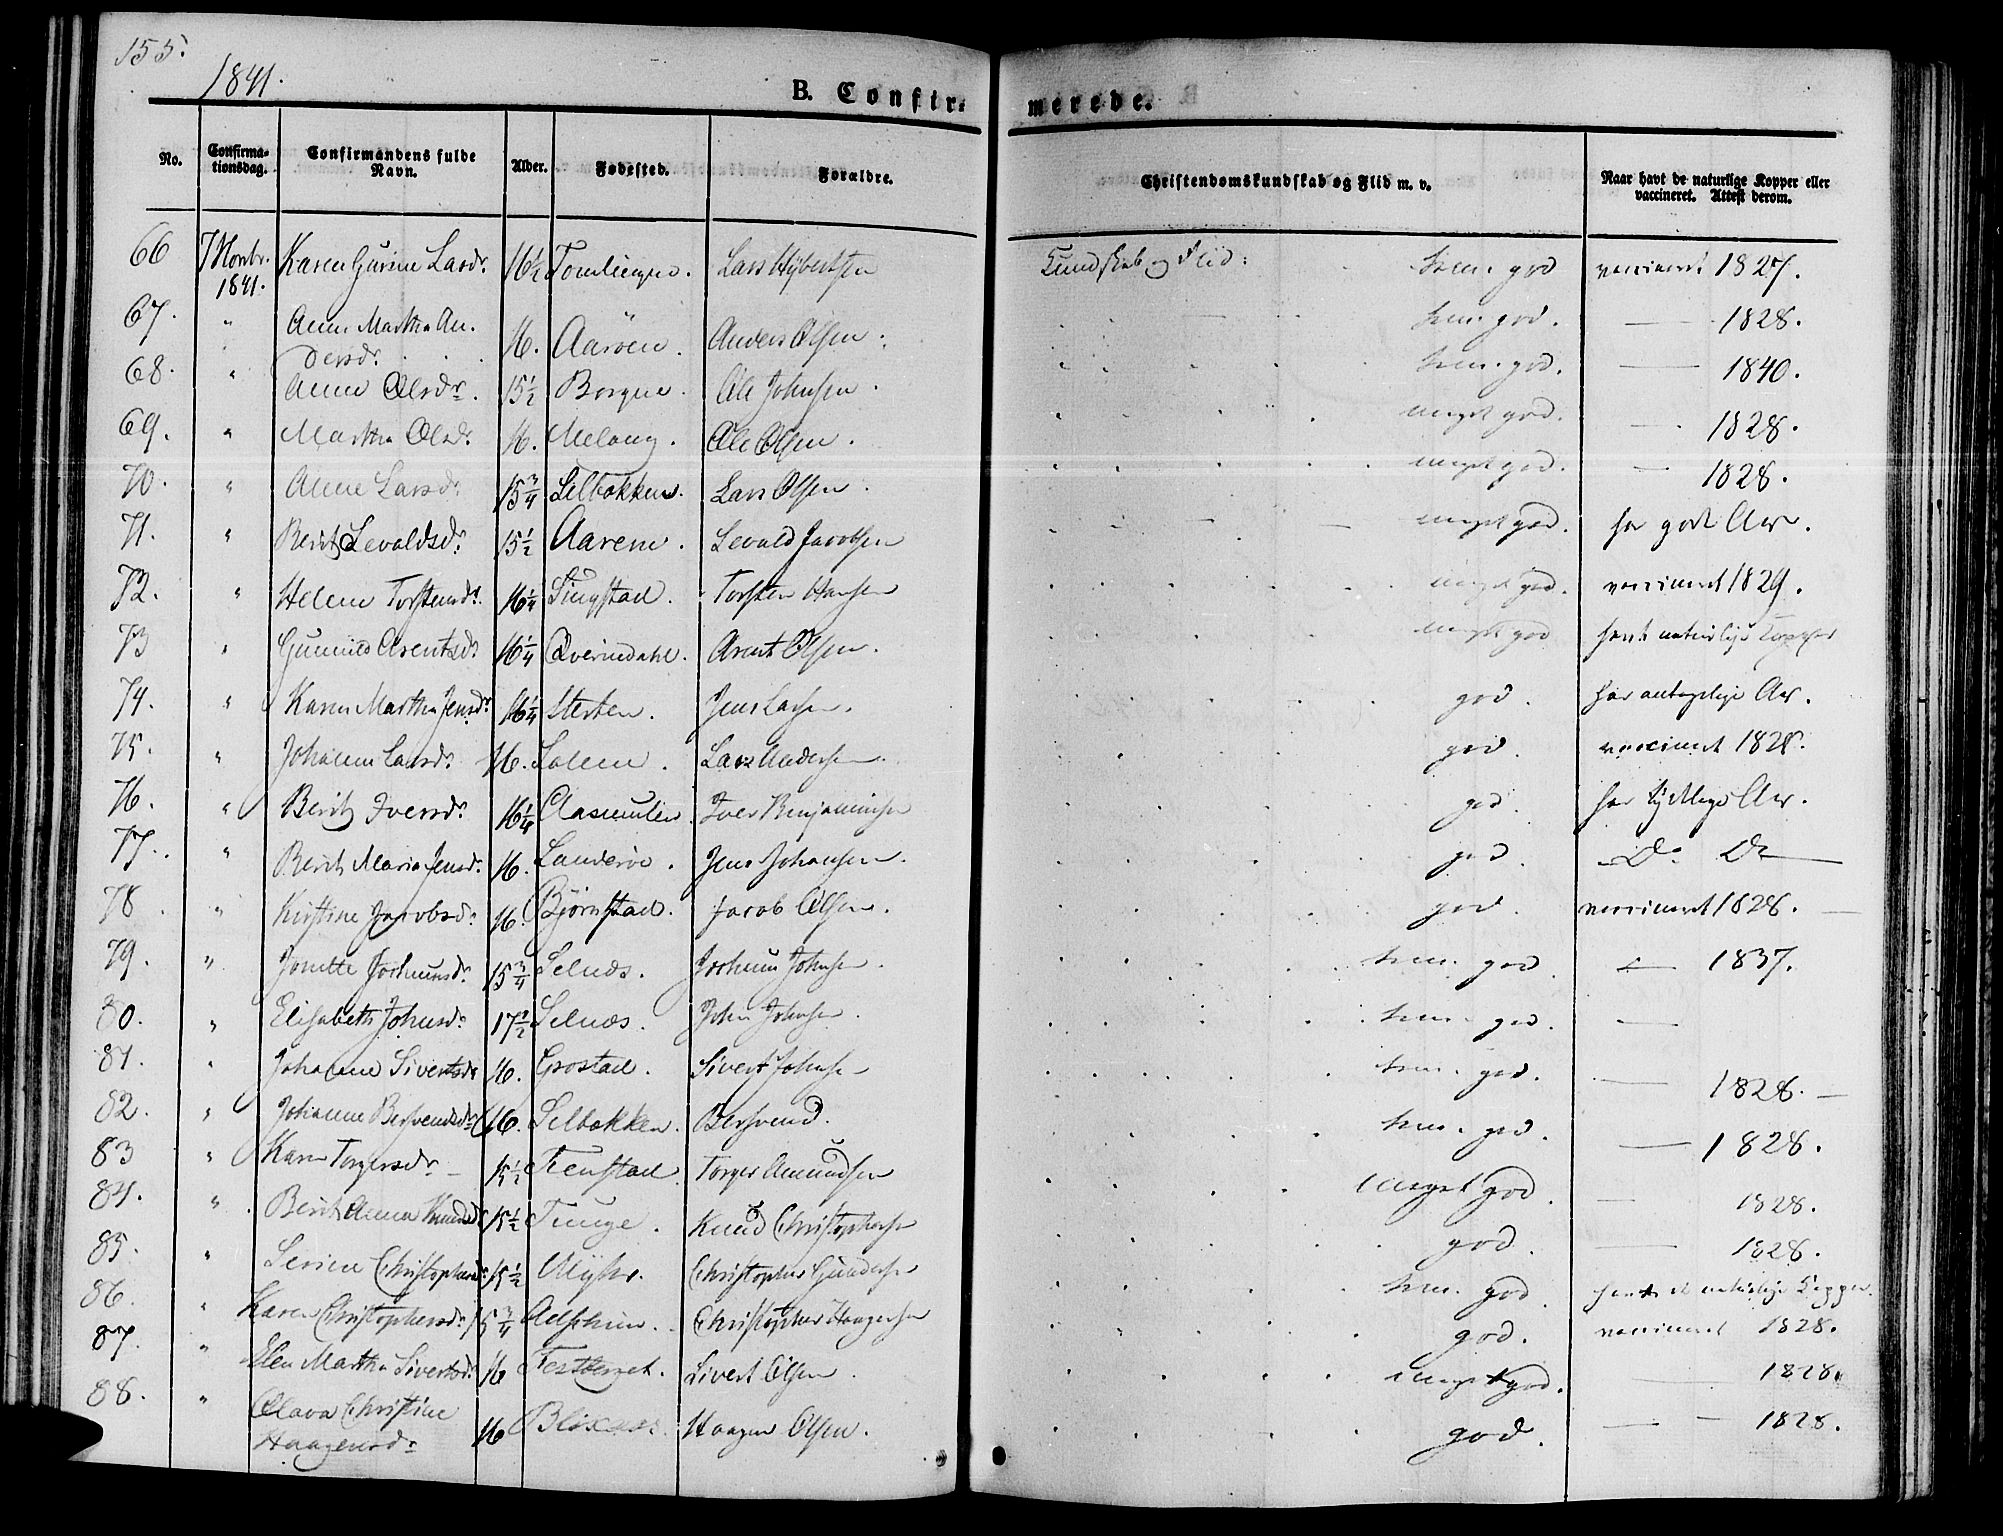 155.
1841.
B. Confir- merede.
No. Confirmationsdag. Confirmandens fulde Navn. Alder. Fødested. Forældre. Christendomskundskab og Flid m. v. Naar havt de naturlige Kopper eller vaccineret. Attest derom.
66 7 Novbr. 1841. Karen Gurine Larsdr. 16½ Lars Kundskab og Flid: god vaccineret 1827.
67. " Anne Martha Andersdr. 16. Aarøen. Anders Olsen. god. — 1828.
68. " Anne Olsdr. 15½ Borgen. Ole Johnsen. god. — 1840.
69. " Martha Olsdr. 16. Ole Olsen. meget god. — 1828.
70. " Anne Larsdr. 15¾ Selbækken. Lars Olsen. meget god. — 1828.
71. " Berit Sevaldsdr. 15½ Aarem. Sevald Jacobsen meget god. har gode Arr.
72. " Helene Torstensdr. 16¼ Singstad. Torsten Hansen meget god. vaccineret 1829.
73 " Gunnild Arentsdr. 16¼ Qverndahl. Arent Olsen. meget god havt naturlige Kopper
74. " Karen Martha Jensdr. 16¼ Sterten. Jens Larsen. god. har antagelige Arr.
75. " Johanne Larsdr. 16. Solem. Lars Andersen. god. vaccineret 1828.
76. " Berit Iversdr. 16¼ Iver Benjaminsen god. har tydelige Arr.
77. " Berit Maria Jensdr. 16. Sanderøe. Jens Johansen. god. — Do Do —
78. " Kirstine Jacobsdr. 16. Bjørnstad. Jacob Olsen. god. vaccineret 1828. —
79. " Jonette Jochumsdr. 15¾ Selnæs. Jochum Johnsen. god. — 1837.
80. " Elisabeth Johnsdr. 17½ Selnæs. John Johnsen. god. —
81. " Johanne Sivertsdr. 16. Grostad. Sivert Johnsen god. — 1828. —
82. " Johanne Bersvendsdr. 16. Selbækken. Bersvend. god. — 1828.
83 " Karen Torgersdr. — 15½ Torger Amundsen meget god. — 1828.
84. " Berit Anna Knudsdr. 15½ Tunge. Knud Christophersen god. — 1828.
85. " Serine Christophersdr. 15½ Myhr. Christopher Gundersen god. havt de naturlige Kopper.
86. " Karen Christophersdr. 15¾ Christopher Haagensen god. vaccineret 1828.
87. " Elen Martha Sivertsdr. 16 Sivert Olsen meget god. — 1828.
88. " Olava Christine Haagensdr. 16 Haagen Olsen. god. — 1828.